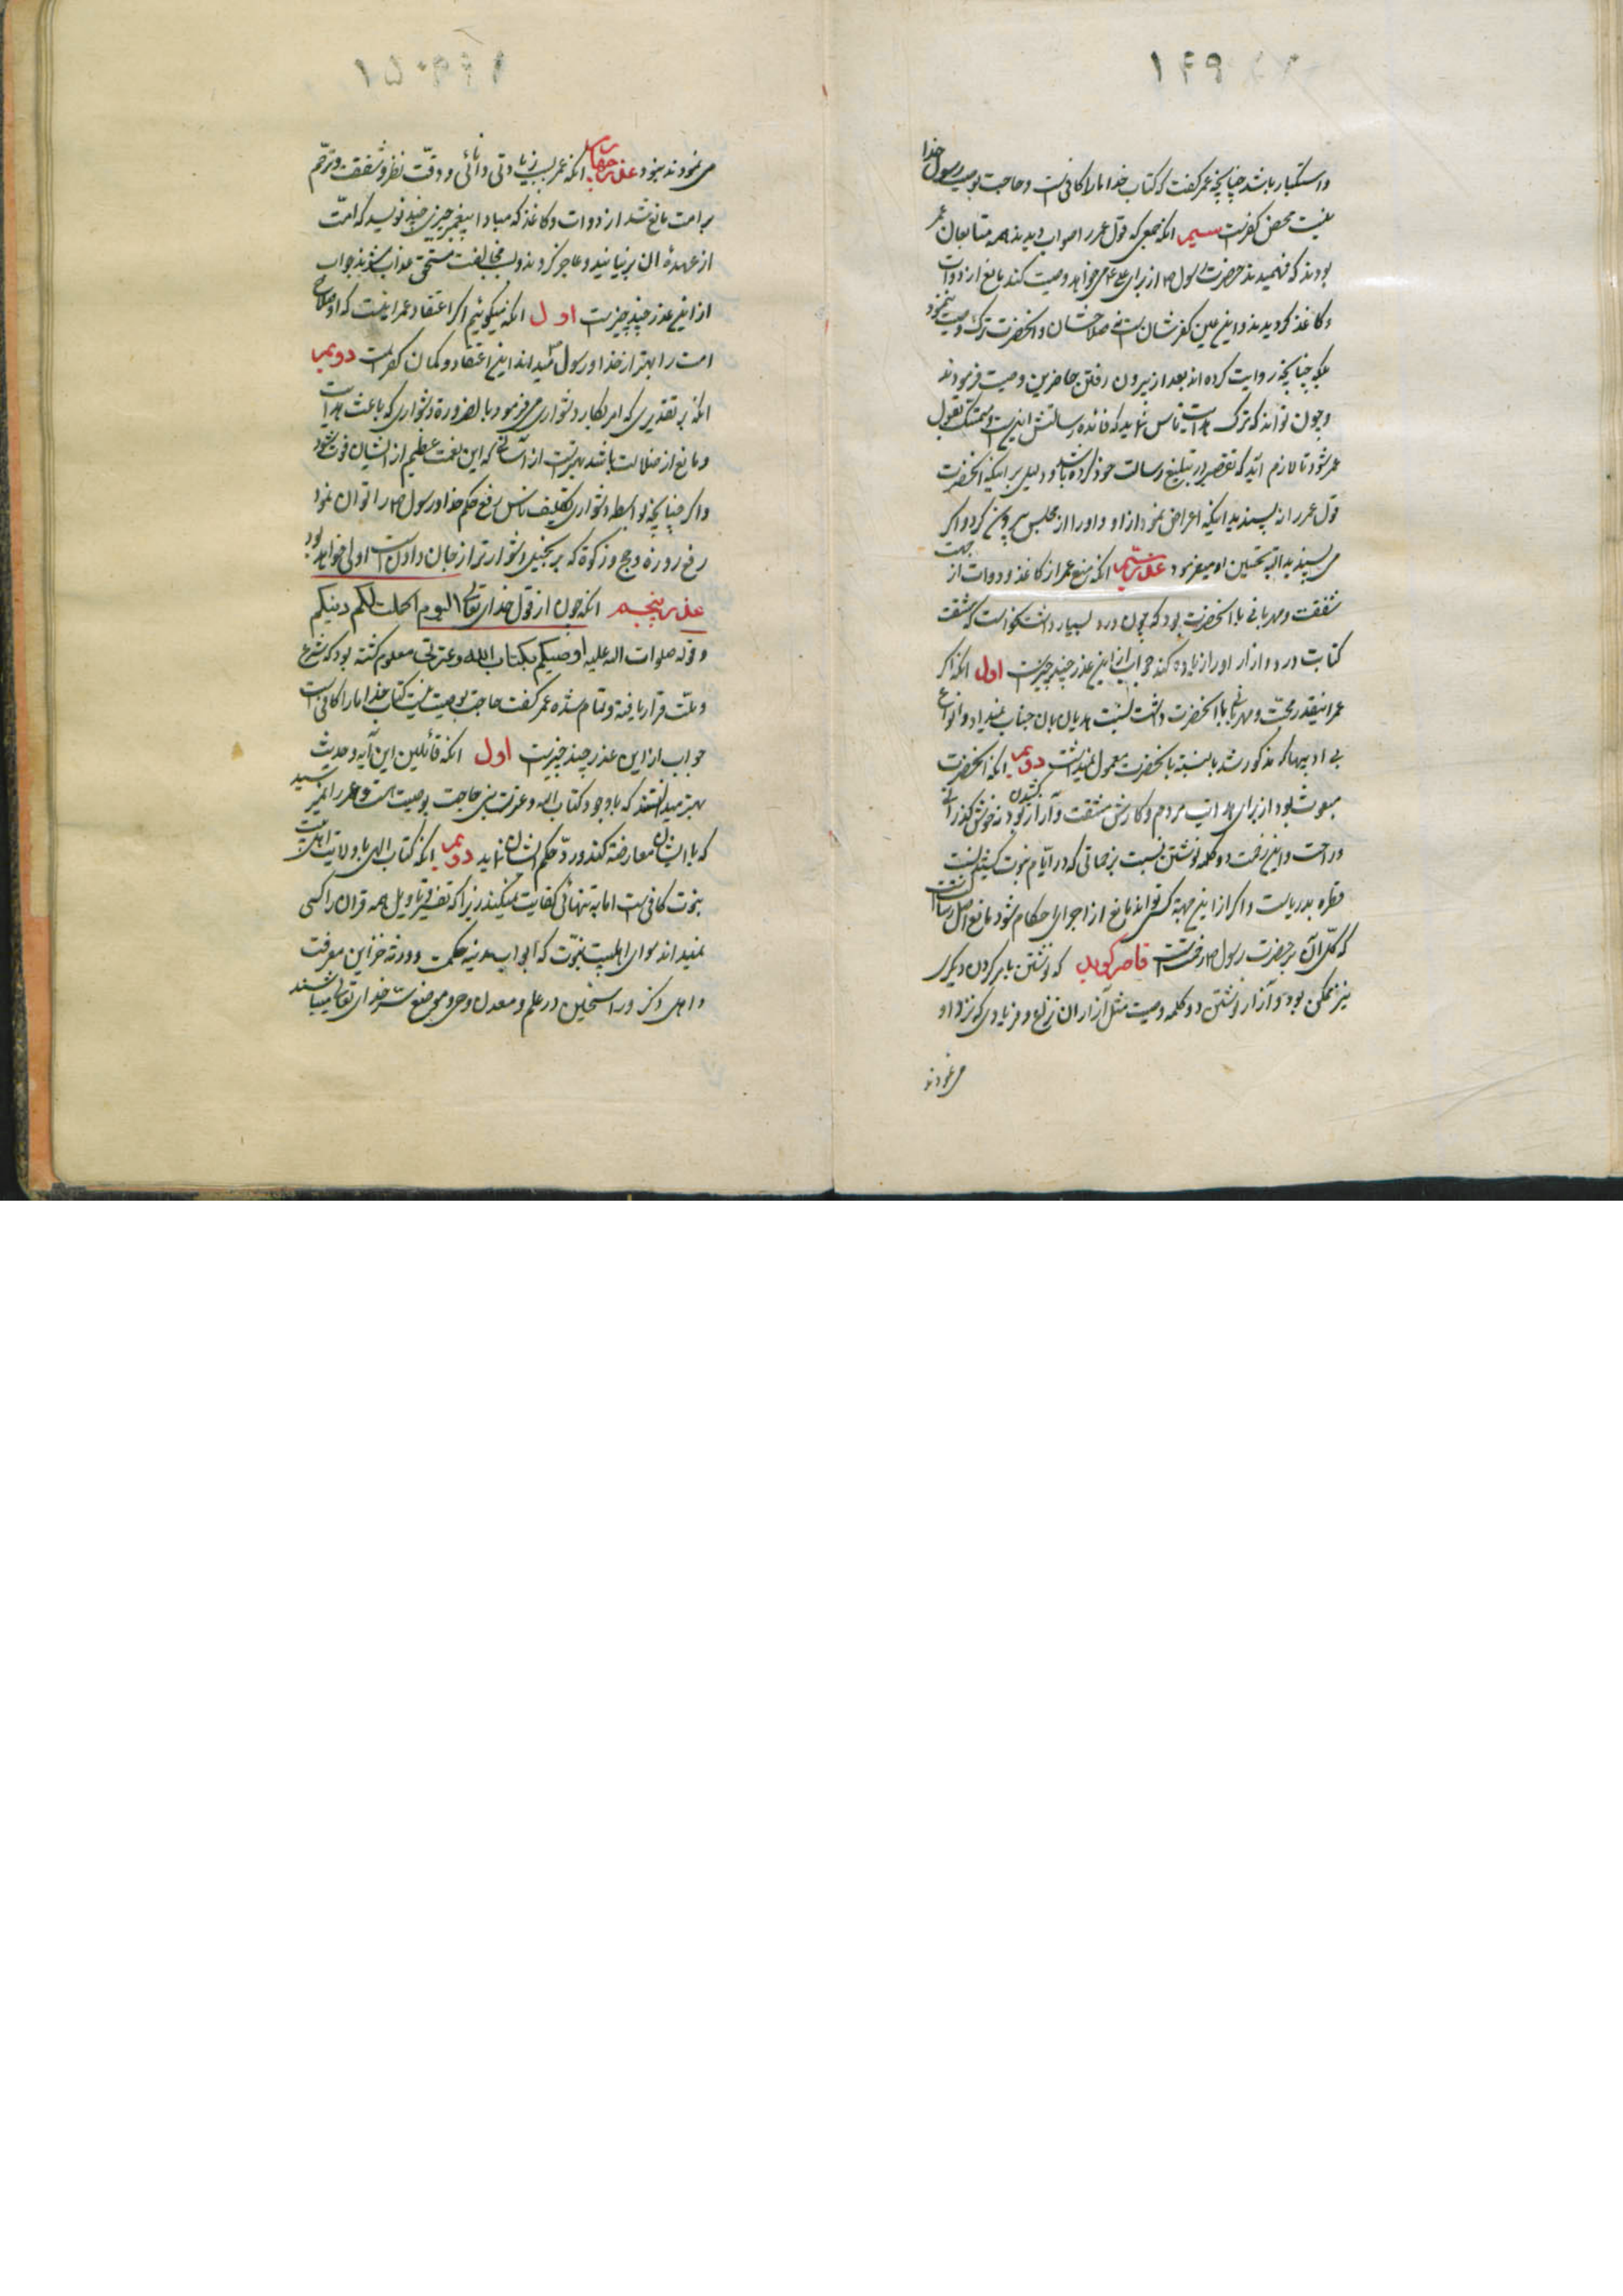 ۱۴۹
و استکبار باشد چنانچه عمر گفت که کتاب خدا ما را کافی است و حاجت بوصیت رسول خدا
نیست محض کفرست سیم انکه جمعی که قول عمر را صواب دیدند همه متابعان عمر
بودند که فهمیدند حضرت رسول ص از برای علی ع میخواهد وصیت کند مانع از دوات
و کاغذ کردیدند و این عین کفرشان است نه صلاحشان و انحضرت ترک وصیت ننمود
بلکه چنانچه روایت کرده اند بعد از بیرون رفتن حاضرین وصیت فرمودند
و چون تواند که ترک هدایت ناس نماید که فائده رسالتش اینست و متمسک بقول
عمر شود تا لازم اید که تقصیر در تبلیغ رسالت خود کرده باشد و دلیل بر اینکه انحضرت
قول عمر را نپسندید اینکه اعراض نمود از او و او را از مجلس بیرون کرد و اکر
می پسندید البته تحسین او میفرمود عذر سیّم انکه منع عمر از کاغذ و دوات از جهت
شفقت و مهربانی با انحضرت بود که چون درد بسیار داشت نخواست که مشقت
کتابت درد و ازار او را زیاده کند جواب از این عذر چند چیزست اول انکه اکر
عمر اینقدر محبّت و مهربانی با انحضرت داشت نسبت هذیان بان جناب نمیداد و انواع
بی ادبیها که مذکور شد بالنسبة بانحضرت معمول نمیداشت دویم انکه انحضرت
مبعوث بود از برای هدایت مردم و کارش مشقت و آزار کشیدن بود نه خوش گذرانی
و راحت و این زحمت دو کلمه نوشتن نسبت بزحماتی که در ایّام نبوت کشید نسبت
قطره بدریاست و اکر از این جهة کسی تواند مانع از اجرای احکام شود مانع اصل رسالت
که کلّ آن بر حضرت رسول ص زحمتست قاصر کوید که نوشتن بامر کردن دیکری
نیز ممکن بود و آزار نوشتن دو کلمه وصیت مثل آزار ان نزاع و فریادی که نزد او
می نمودند
۱۵۰
می نمودند نبود عذر چهارم انکه عمر بسبب زیادتی دانائی و دقّت نظر و شفقت و ترحّم
بر امت مانع شد از دوات و کاغذ که مبادا پیغمبر چیزی چند نویسد که امّت
از عهدهٔ ان بر نیایند و عاجز کردند و بسبب مخالفت مستحق عذاب شوند جواب
از این عذر چند چیزست اول انکه میکوئیم اکر اعتقاد عمر اینست که او صلاح
امت را بهتر از خدا و رسول میداند این اعتقاد و کمان کفر است دویم
انکه بر تقدیری که امر بکار دشواری میفرمود بالضروره دشواری که باعث هدایت
و مانع از ضلالت باشد بهترست از آسانی که این نعمت عظیم از ایشان فوت شود
و اکر چنانچه بواسطه دشواری تکلیف ناس رفع حکم خدا و رسول ص را توان نمود
رفع روزه و حج و زکوة که بر بخیل دشوارتر از جان دادن است اولی خواهد بود
عذر پنجم انکه چون از قول خدای تعالی الیوم اکملت لکم دینکم
و قوله صلوات الله علیه اوصیکم بکتاب الله و عترتی معلوم کشته بود که شرع
و ملّت قرار یافته و تمام شده عمر گفت حاجت بوصیت نیست کتاب خدا ما را کافی است
جواب از این عذر چند چیزست اول انکه قائلین این آیه و حدیث
بهتر میدانستند که با وجود کتاب الله و عترت نبی حاجت بوصیت هست و عمر را نمیرسید
که با ایشان معارضه کند و ردّ حکم ایشان نماید دویم انکه کتاب الهی با ولایت اهل بیت
نبوت کافی است اما به تنهائی کفایت نمیکند زیرا که تفسیر و تاویل همه قران را کسی
نمیداند سوای اهلبیت نبوّت که ابواب مدینه حکمت و ورثه خزاین معرفت
و اهل ذکر و راسخین در علم و معدن وحی و موضع سرّ خدای تعالی میباشند